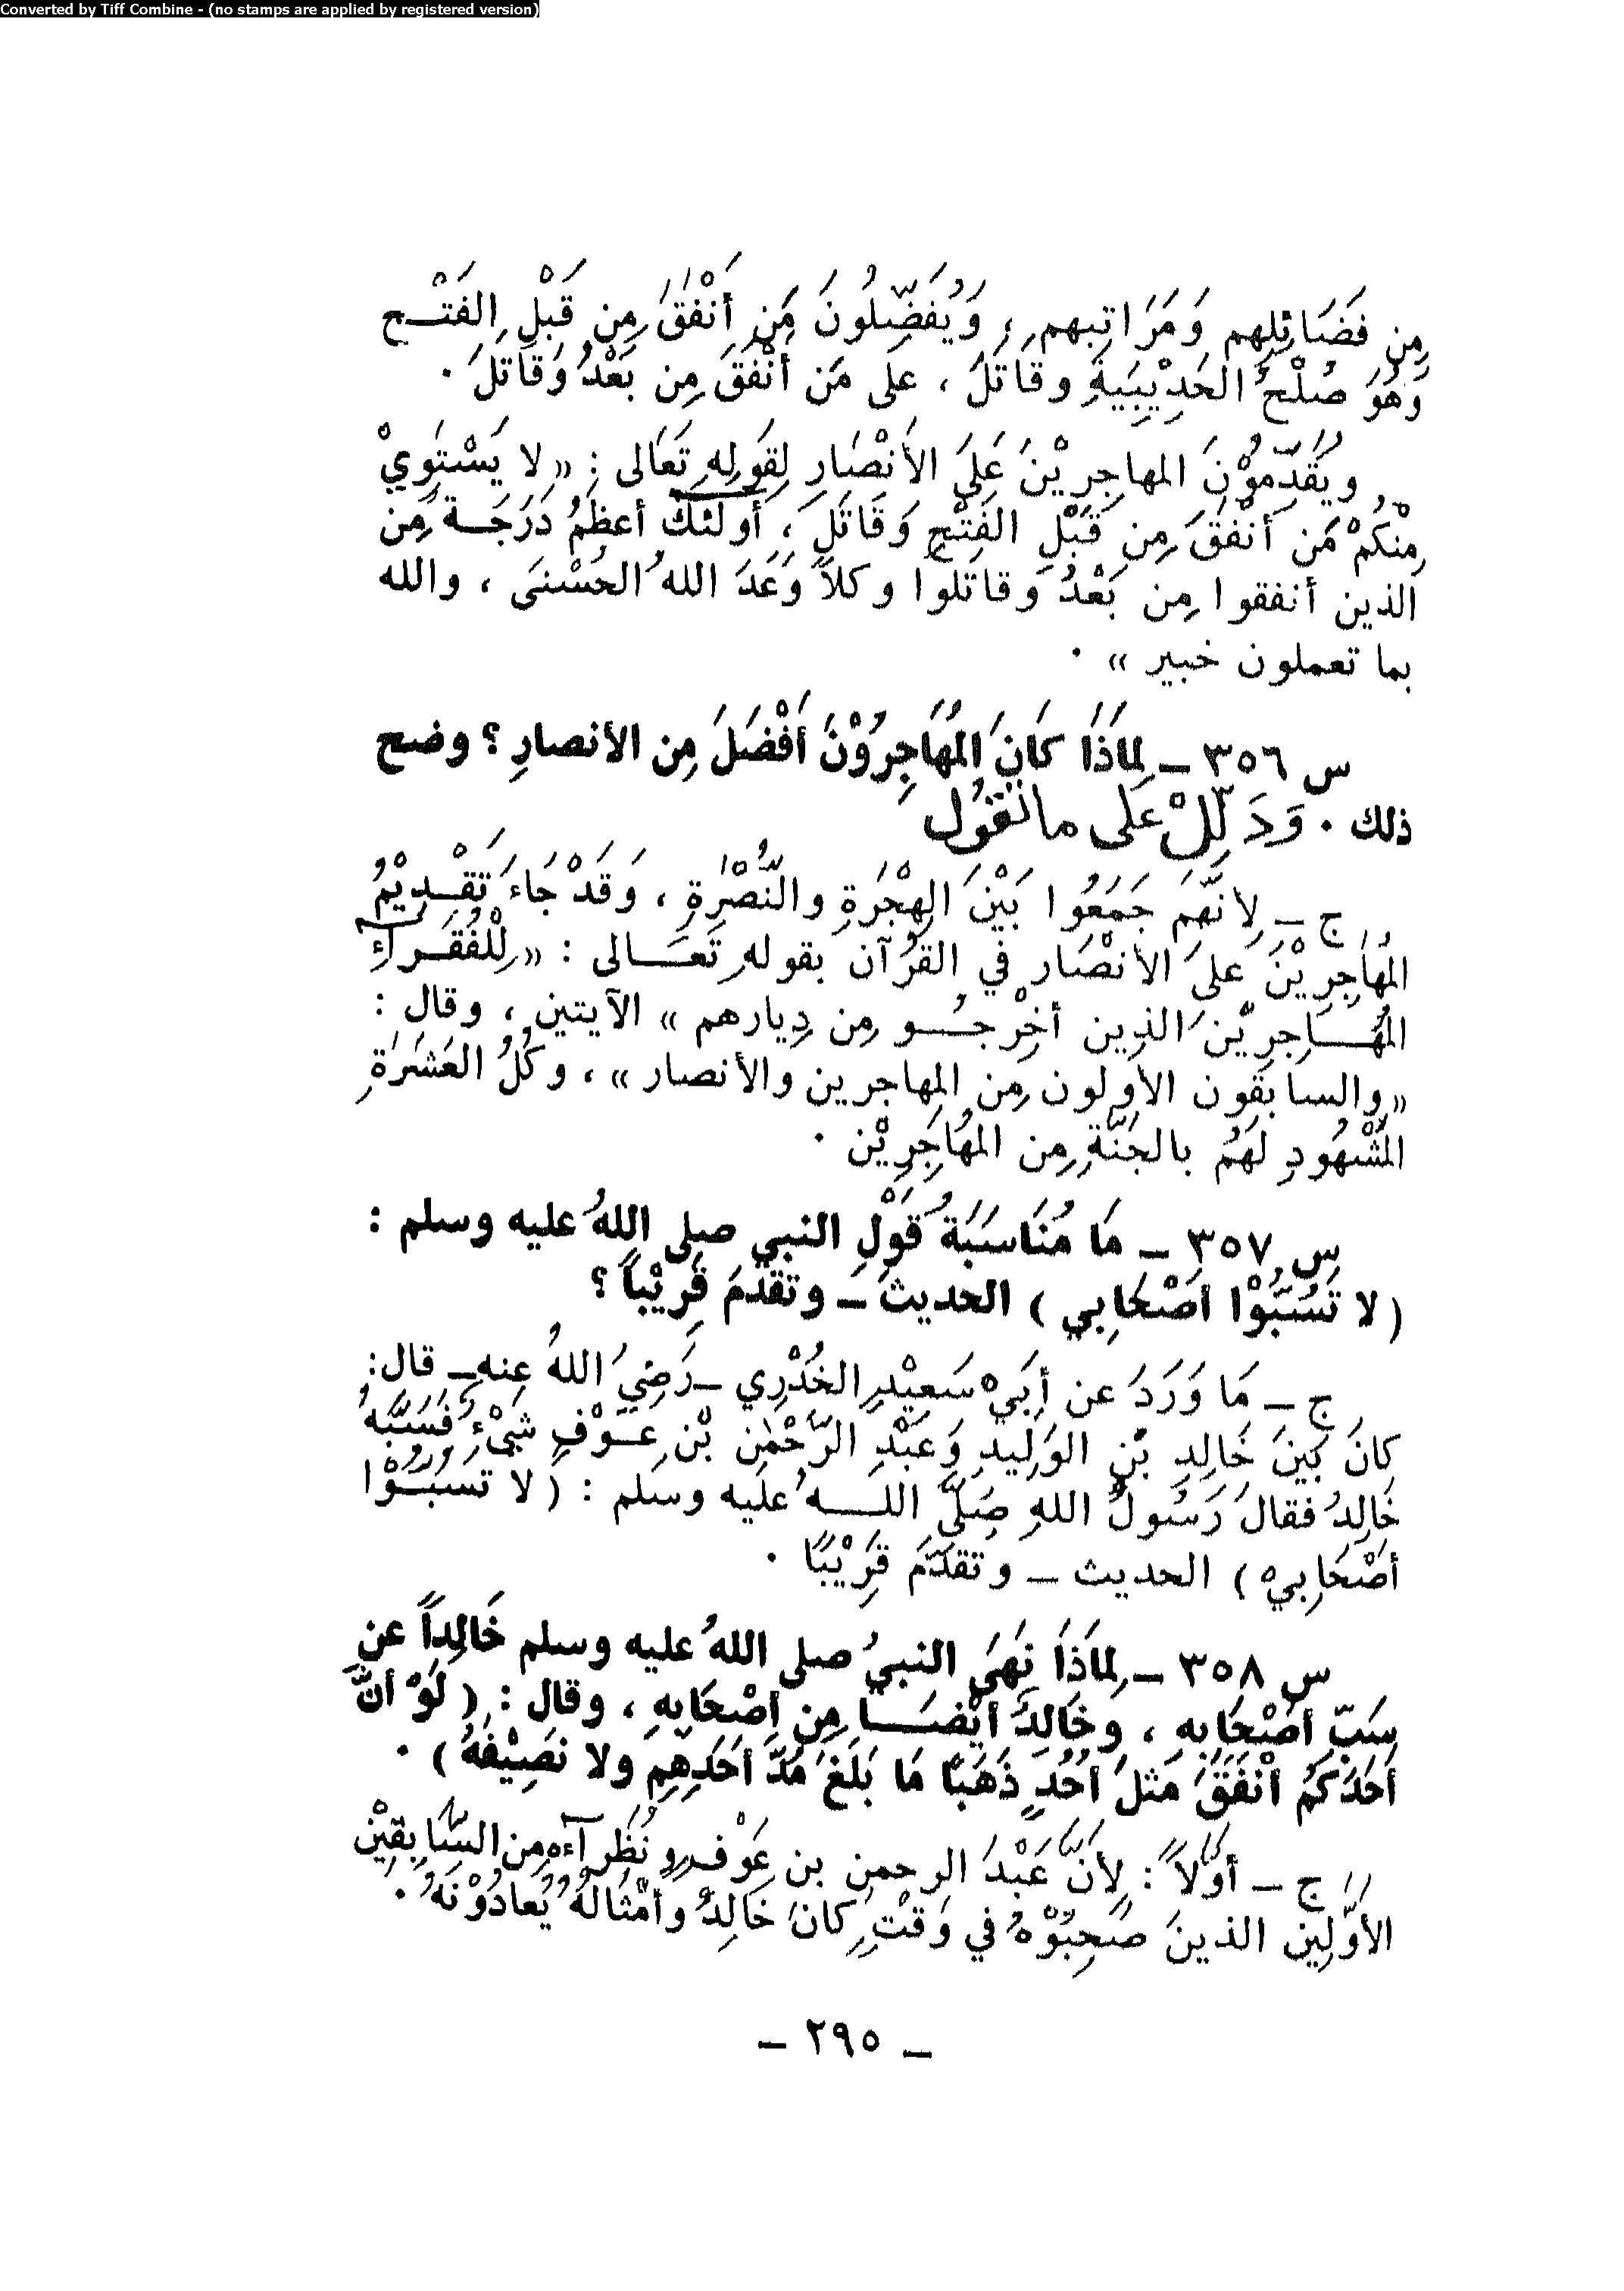 Converted by Tiff Combine - (no stamps are applied by registered version)
مِن فَضَائِلِهِم وَمَرَاتِبِهِم ، وَيُفَضِّلُونَ مَن أَنْفَقَ مِن قَبْلِ الفَتْـح
وَهُوَ صُلْحُ الحَدِيْبِيَةِ وقَاتَلَ ، على مَن أَنْفَقَ مِن بَعْدُ وَقَاتَلَ .
ويُقَدِّمُوْنَ المهاجِرِيْنَ عَلَى الأَنْصَارِ لِقَوْلِهِ تَعَالى : « لا يَسْتَوِيْ
مِنْكُمْ مَن أَنْفَقَ مِن قَبْلِ الفَتْحِ وَقَاتَلَ ، أولَئكَ أعظَمُ دَرَجَـة مِن
الذين أنفقوا مِن بَعْدُ وقاتَلوا وكلاً وَعَدَ اللهُ الحُسْنَى ، والله
بما تعملون خبير » .
س ٣٥٦ – لِمَاذَا كَانَ المُهَاجِرُوْنَ أَفْضَلَ مِن الأنصارِ ؟ وضح
ذلك . وَدَلِّلْ عَلى ما تَقُوُل
ج – لِأنَّهم جَمَعُوا بَيْنَ الهِجْرَةِ والنُّصْرَةِ ، وَقَدْ جَاءَ تَقْـدِيْمُ
المُهَاجِرِيْنَ عَلىَ الأنْصَار في القُرْآن بقولهِ تَعَـالى : « لِلْفُقَـرَآءِ
المُهَـاجِرِيْنَ الذِين أخْرِجُـو مِن دِيارهم » الآيتين ، وقال :
« والسابقون الأولون مِن المهاجرين والأنصار » ، وكُلُّ العَشَرَةِ
المَشْهُودِ لَهُمُ بالجَنَّةِ مِن المُهَاجَرِيْن .
س ٣٥٧ – مَا مُنَاسَبَةُ قَوْلِ النبي صلى اللهُ عليه وسلم :
( لا تَسُبُّوْا أصْحَابِي ) الحديث – وتقدَّمَ قَرِيْباً ؟
ج – مَا وَرَدَ عن أبَيْ سَعِيْدٍ الخُدْرِي –رَضِيَ اللهُ عنه– قال:
كانَ بَينَ خَالِدِ بْنِ الوَلِيدِ وَعَبْدِ الرَّحْمنِ بْنِ عَـوْفٍ شَيْءٌ فَسَبَّهُ
خَالِدُ فقالَ رَسُولُ اللهِ صَلَّى اللـهُ عليه وسلم : ( لا تَسُبُّـوْا
أصْحَابِيْ ) الحديث – وتقدَّمَ قَرِيْبًا .
س ٣٥٨ – لِمَاذَا نَهَى النبيُ صلى اللهُ عليه وسلم خَالِداً عن
سَبِّ أصْحَابِهِ ، وخَالِدُ أيْضَـا مِن أصْحَابِهِ ، وقال : ( لَوْ أنَّ
أحَدَكُمْ أنْفَقَ مَثلَ أُحُدٍ ذَهَبًا مَا بَلَغَ مُدَّ أحَدِهِم ولا نَصِيْفَهُ ) .
ج – أوَّلاً : لأنَّ عَبْدَ الرحمنِ بن عَوْفٍ ونُظَرآءه مِن السَّابِقِيْن
الأوَّلِين الذينَ صَحِبُوْهُ في وَقْتٍ كانَ خَالِدُ وأمْثَالهُ يُعَادُوْنَهُ .
– ٢٩٥ –